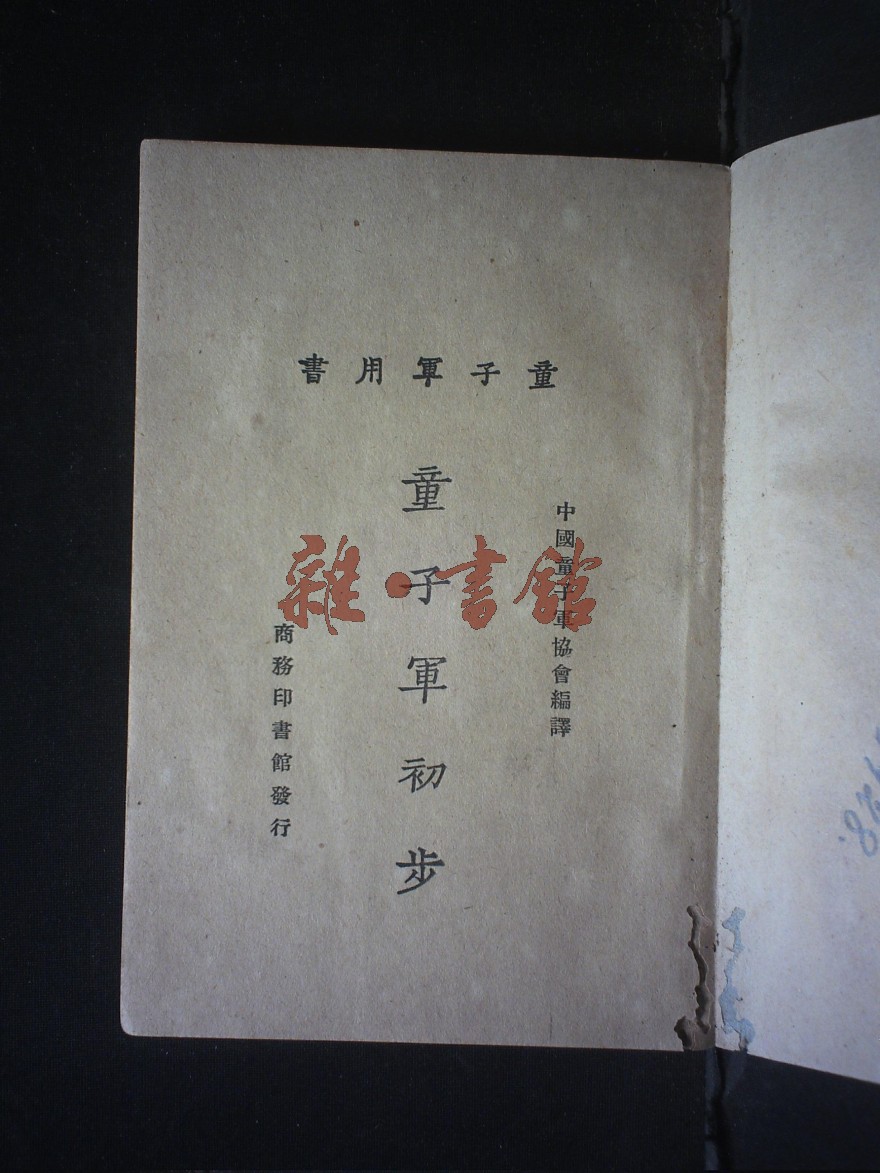 童子軍用書
中國童子軍協會編譯
童子軍初步
商務印書館發行
雜·書館